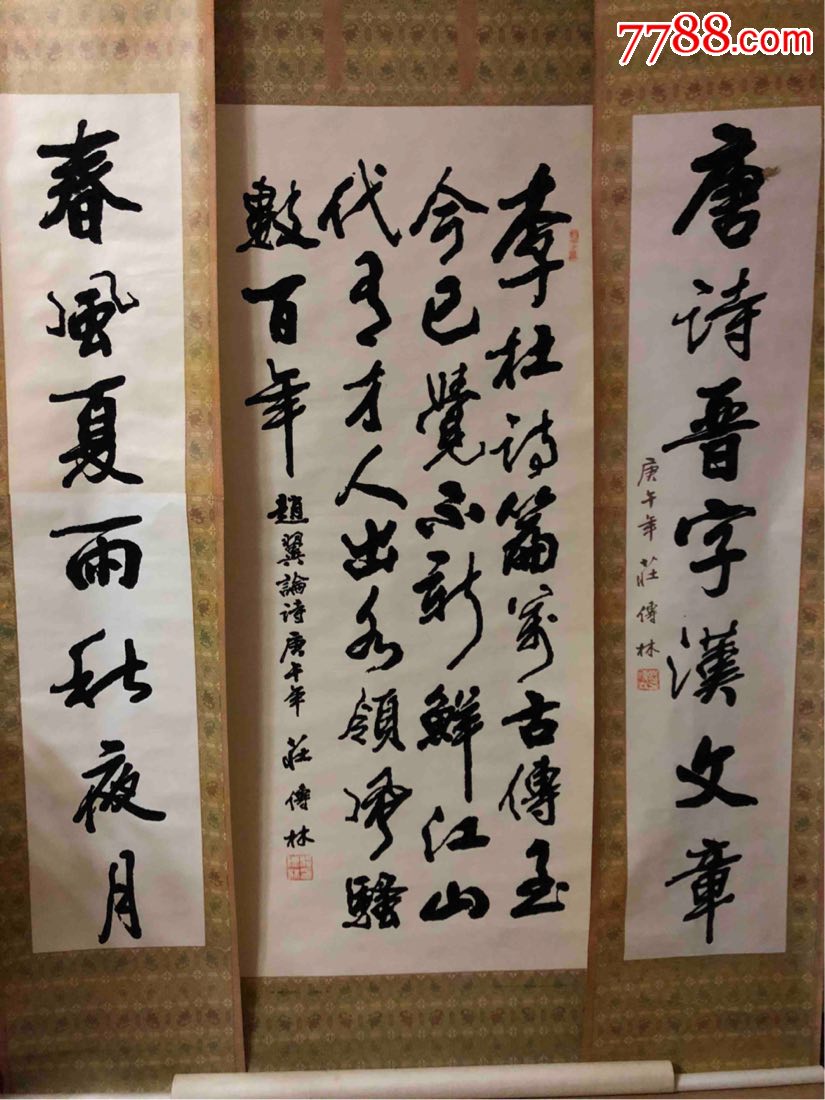 7788.com
唐诗晋字漢文章
庚午年 莊傳林
李杜诗篇萬古傳至
今已覺不新鮮江山
代有才人出各領風騷
數百年
趙翼論诗庚午年 莊傳林
春風夏雨秋夜月